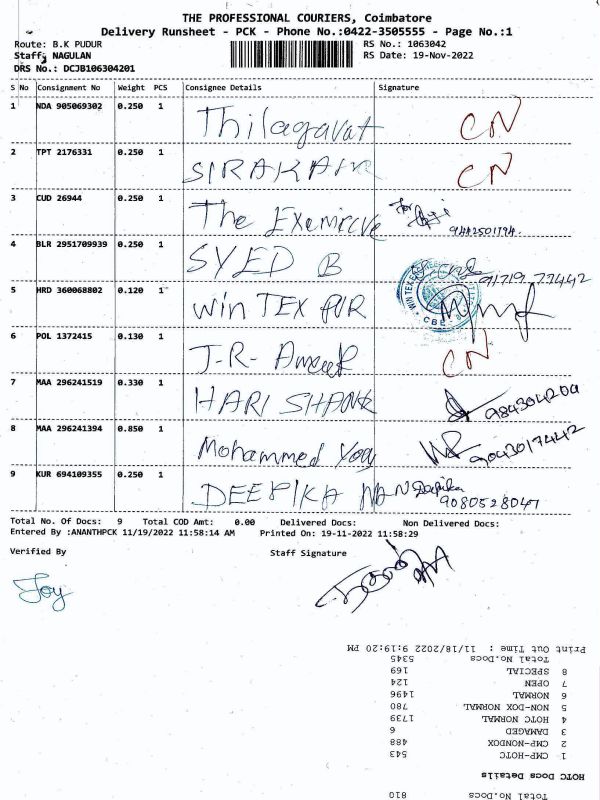 THE PROFESSIONAL COURIERS, Coimbatore
Delivery Runsheet - PCK - Phone No.:0422-3505555 - Page No.:1
Route: B.K PUDUR
RS No.: 1063042
Staff: NAGULAN
RS Date: 19-Nov-2022
DRS No.: DCJB106304201
S No Consignment No Weight PCS Consignee Details Signature
1 NDA 905069302 0.250 1 Thilagavat CN
2 TPT 2176331 0.250 1 SIRAKAIR CN
3 CUD 26944 0.250 1 The 9442501794
4 BLR 2951709939 0.250 1 SYED B 91719 73442
5 HRD 360068802 0.120 1 Win TEX FUR
CBE
6 POL 1372415 0.130 1 J-R- CN
7 MAA 296241519 0.330 1 HARI SHANK 984304204
8 MAA 296241394 0.850 1 Mohammed 9043017442
9 KUR 694109355 0.250 1 DEEPIKA NAN Deepika
9080528047
Total No. Of Docs: 9 Total COD Amt: 0.00 Delivered Docs: Non Delivered Docs:
Entered By :ANANTHPCK 11/19/2022 11:58:14 AM Printed On: 19-11-2022 11:58:29
Verified By Staff Signature
Joy
Total No.Docs 810
HOTC Docs Details
1 CMP-HOTC 543
2 CMP-NONDOX 488
3 DAMAGED 6
4 HOTC NORMAL 1739
5 NON-DOX NORMAL 780
6 NORMAL 1496
7 OPEN 124
8 SPECIAL 169
Total No.Docs 5345
Print Out Time : 11/18/2022 9:19:20 PM